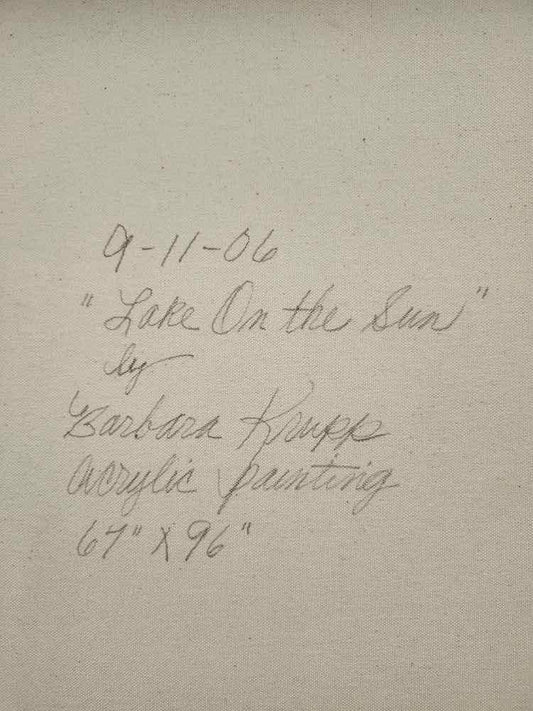 9-11-06
"Lake On the Sun"
by
Barbara Krupp
acrylic painting
67" X 96"